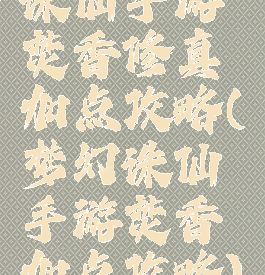 诛仙手游
焚香修真
加点攻略(
梦幻诛仙
手游焚香
加点攻略)